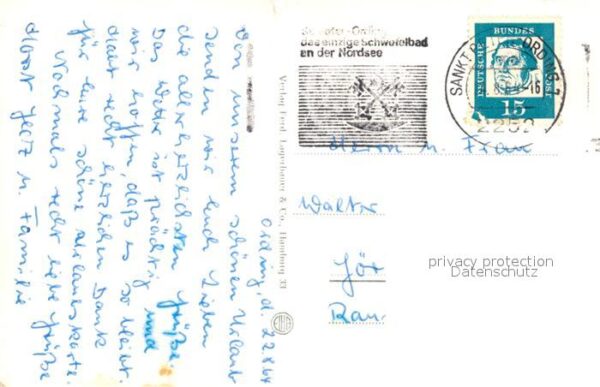 Ording, d. 22.8.64
Von unserem schönen Urlaub
senden wir Euch Lieben
die allerherzlichsten Grüße
Das Wetter ist prächtig und
wir hoffen, daß es so bleibt.
recht herzlichen Dank
für eure schöne Urlaubskarte.
Nochmals recht liebe Grüße
u. Familie
Verlag Ferd. Lagerbauer & Co., Hamburg 33
das einzige Schwefelbad
an der Nordsee
SANKT ORDING
2252
DEUTSCHE BUNDESPOST
15
Herrn u. Frau
Walter
Rau
privacy protection
Datenschutz